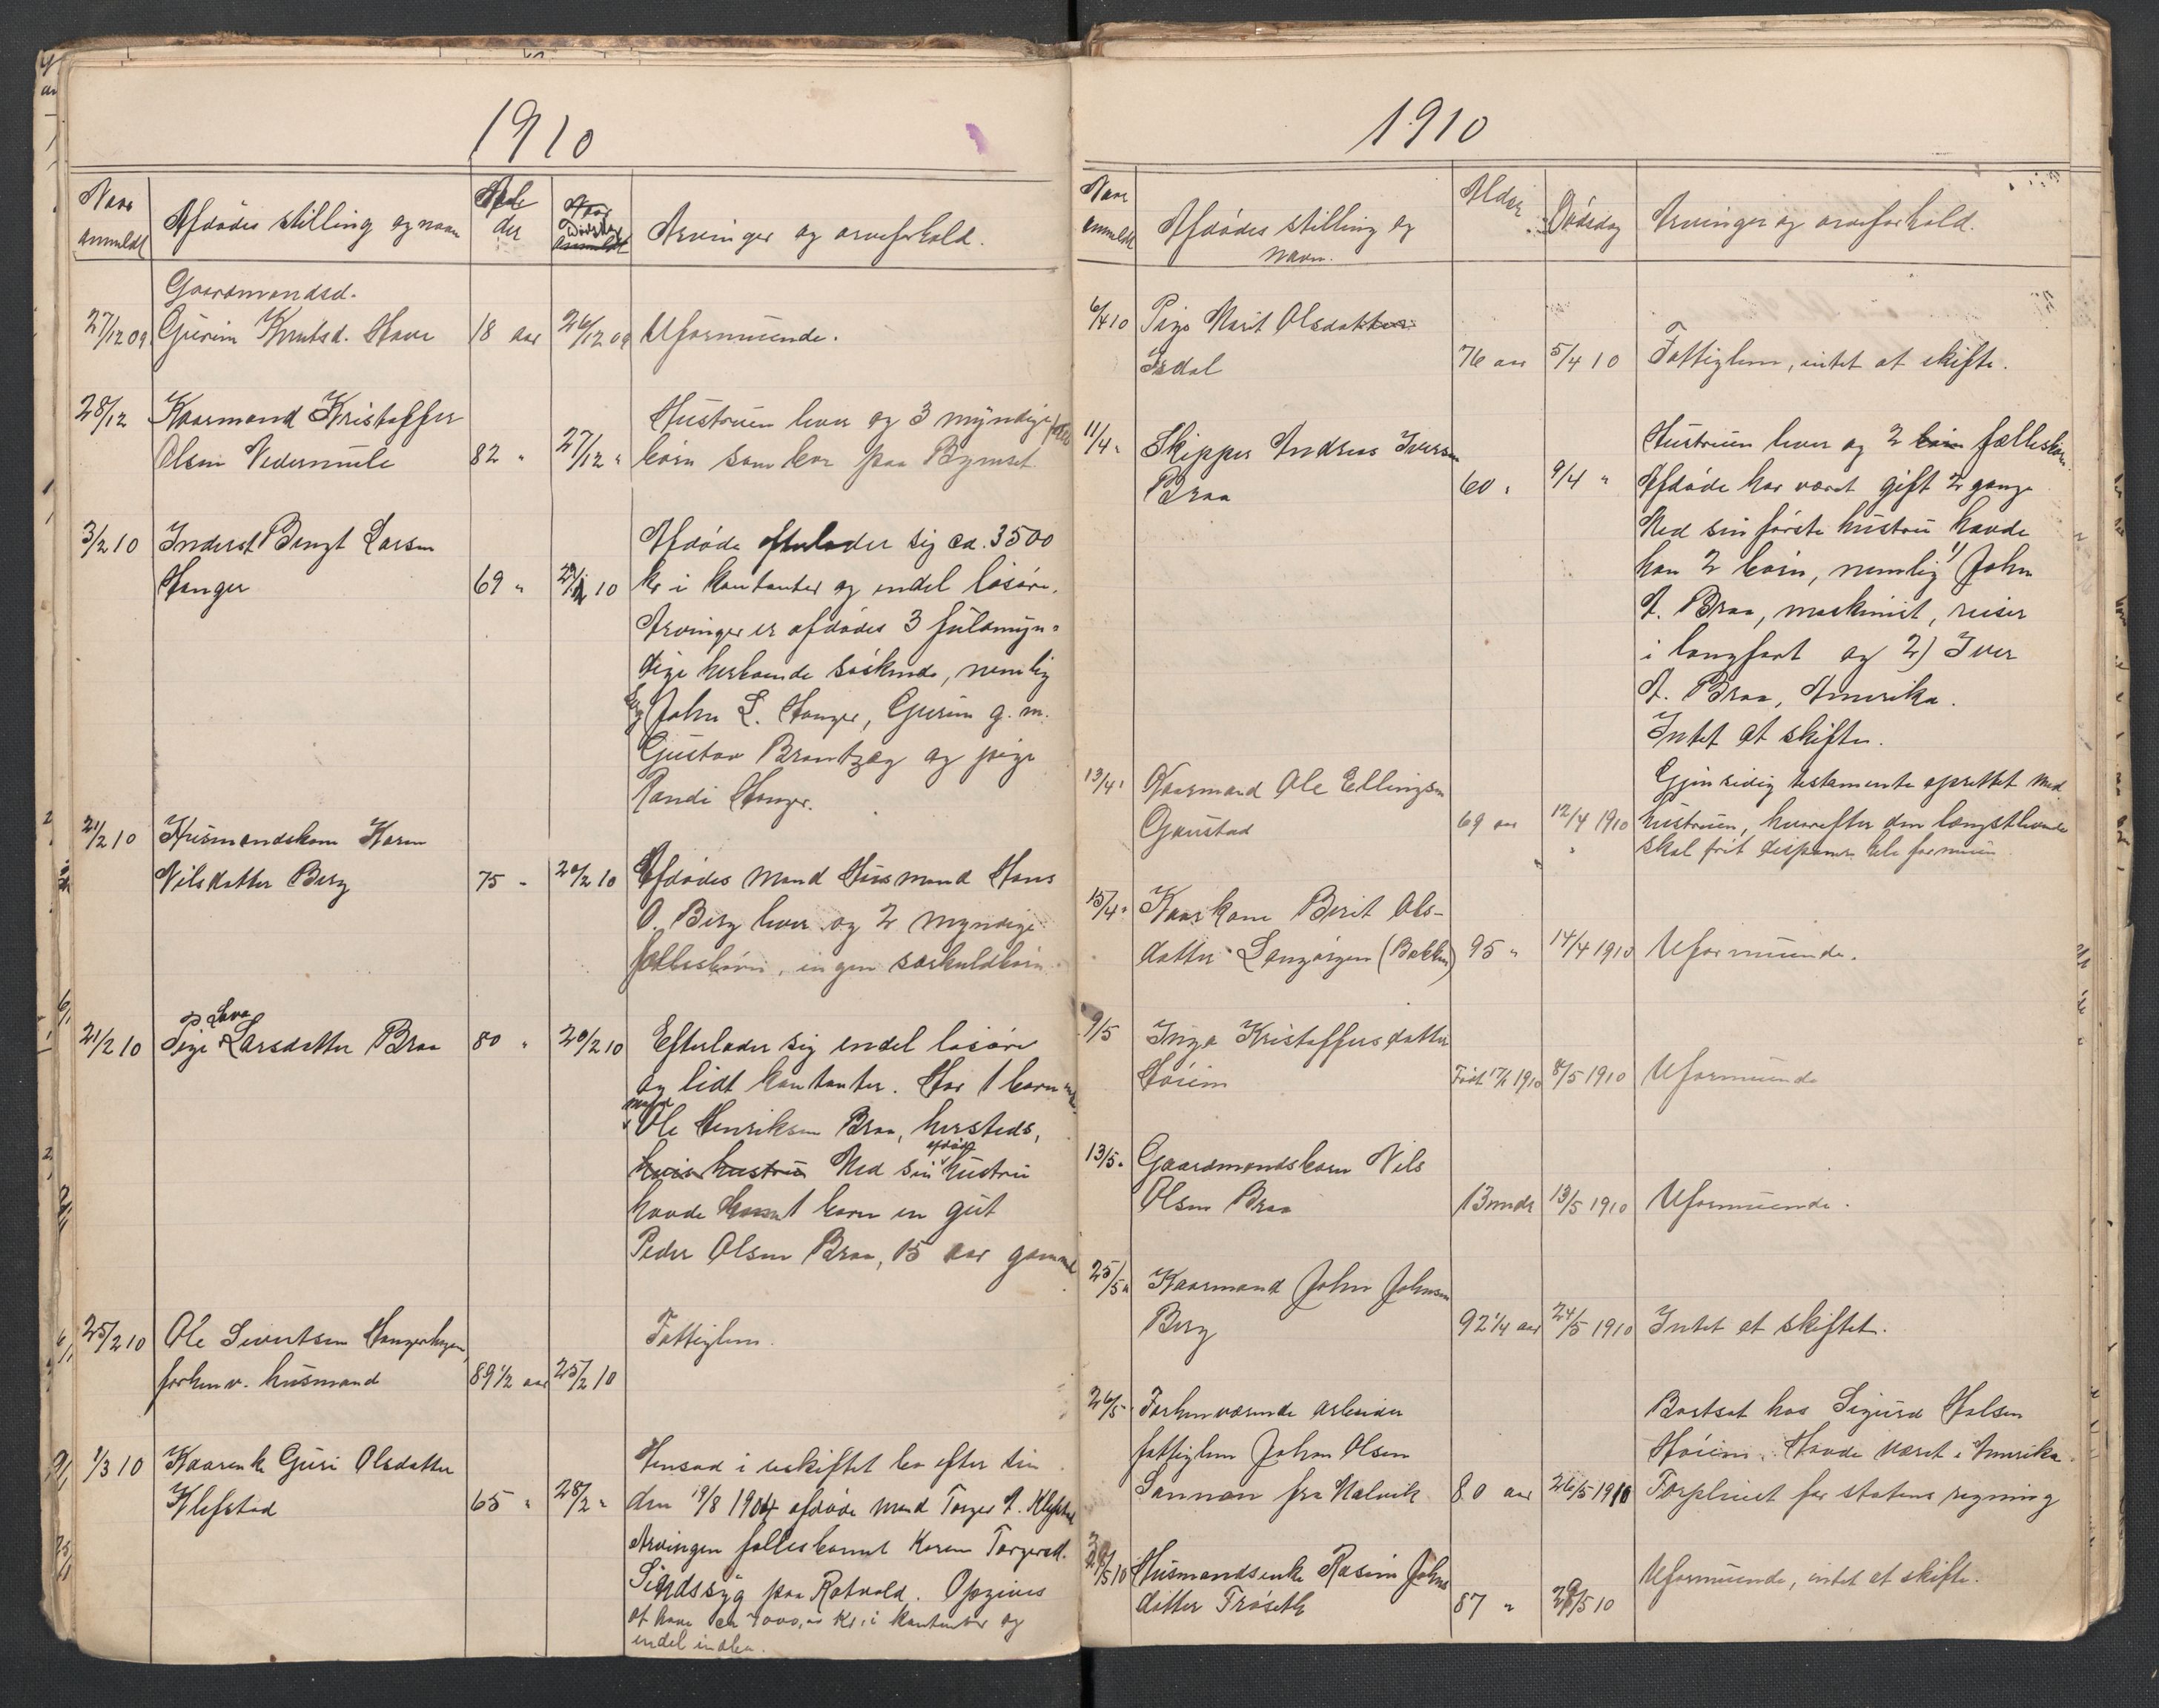 1910
Naar anmeldt
Afdødes stilling og navn
Alder
Dødsdag
Arvinger og arveforhold.
Gaardmandsd.
27/12 09 Gurine Knutsd. Have 18 aar 26/12 09 Uformuende.
28/12 Kaarmand Kristoffer
Hustruen lever og 3 myndige fælles
Olsen Vedermule 82 " 27/12 " børn som bor paa Bymset.
3/2 10 Inderst Bengt Larsen
Afdøde efterlader sig ca. 3500
Hanger 69 " 29/1 10 kr i kontanter og endel løsøre.
Arvinger er afdødes 3 fuldmyn-
dige herboende søskende, nemlig
John L. Hanger, Gurine g. m.
Gustav Brantzæg og pige
Randi Hanger.
21/2 10 Husmandskone Karen
Nilsdatter Berg 75 " 20/2 10 Afdødes mand Husmand Hans
O. Berg lever og 2 myndige
fællesbørn, ingen særkuldbørn
21/2 10 Pige Lava Larsdatter Braa 80 " 20/2 10 Efterlader sig endel løsøre
og lidt kontanter. Har 1 barn
Ole Henriksen Braa, hersteds,
hvis hustru Med sin afdøde hustru
havde han 1 barn en gut
Peder Olsen Braa, 15 aar gammel
25/2 10 Ole Sivertsen Hangerhagen,
Fattiglem.
forhenv. husmand 89 1/2 aar 25/2 10
1/3 10 Kaarenke Guri Olsdatter
Hensad i uskiftet bo efter sin
Klefstad 65 " 28/2 " den 19/8 1904 afdøde mand Torger A. Klefstad
Arvingen fællesbarnet Karen Torgersd.
Sindssyg paa Rotvold. Opgives
at have ca 7000,00 Kr. i kontanter og
endel indbo.
1910
Naar anmeldt
Afdødes stilling og
navn.
Alder
Dødsdag
Arvinger og arveforhold.
6/4 10 Pige Marit Olsdatter
Isdal 76 aar 5/4 10 Fattiglem, intet at skifte.
11/4 " Skipper Andreas Iversen
Hustruen lever og 2 børn fællesbørn.
Braa 60 " 9/4 " Afdøde har været gift 2 gange
Med sin første hustru havde
han 2 børn, nemlig 1) John
A. Braa, maskinist, reiser
i langfart og 2) Iver
A. Braa, Amerika.
Intet at skifte.
13/4 " Kaarmand Ole Ellingsen
Gjensidig testamente oprettet med
Gaustad 69 aar 12/4 1910 hustruen, hvorefter den længstlevende
skal frit disponere hele formuen.
15/4 " Kaarkone Berit Ols-
datter Langørgen (Bakken) 95 " 14/4 1910 Uformuende.
9/5 Inga Kristoffersdatter
Høiem Født 17/1 1910 8/5 1910 Uformuende
13/5 " Gaardmandsbarn Nils
Olsen Braa 13 mndr 13/5 1910 Uformuende.
25/5 " Kaarmand John Johnsen
Berg 92 1/4 aar 24/5 1910 Intet at skiftet.
26/5 " Forhenværende arbeider
Bortsat hos Sigurd Halsen
fattiglem Johan Olsen
Høiem. Havde været i Amerika.
Sannan fra Malvik 80 aar 26/5 1910 Forpleiet for statens regning
5 10 Husmandsenke Rasine Johns
Uformuende, intet at skifte.
datter Frøseth 87 " 5 10